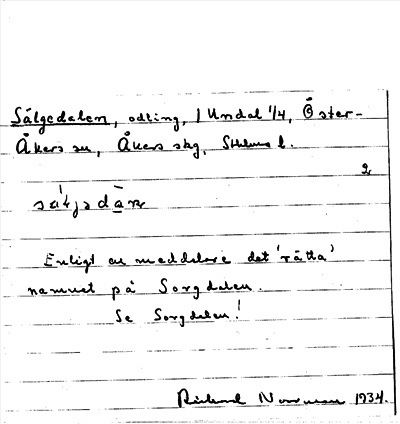 Sälgedalen, odling, 1 Undal 1/4, Öster-
Åkers sn, Åkers skg, Sthlms l.
2
Enligt en meddelare det 'rätta'
namnet på Sorgdalen.
Se Sorgdalen!
Rickard Norrman 1934.